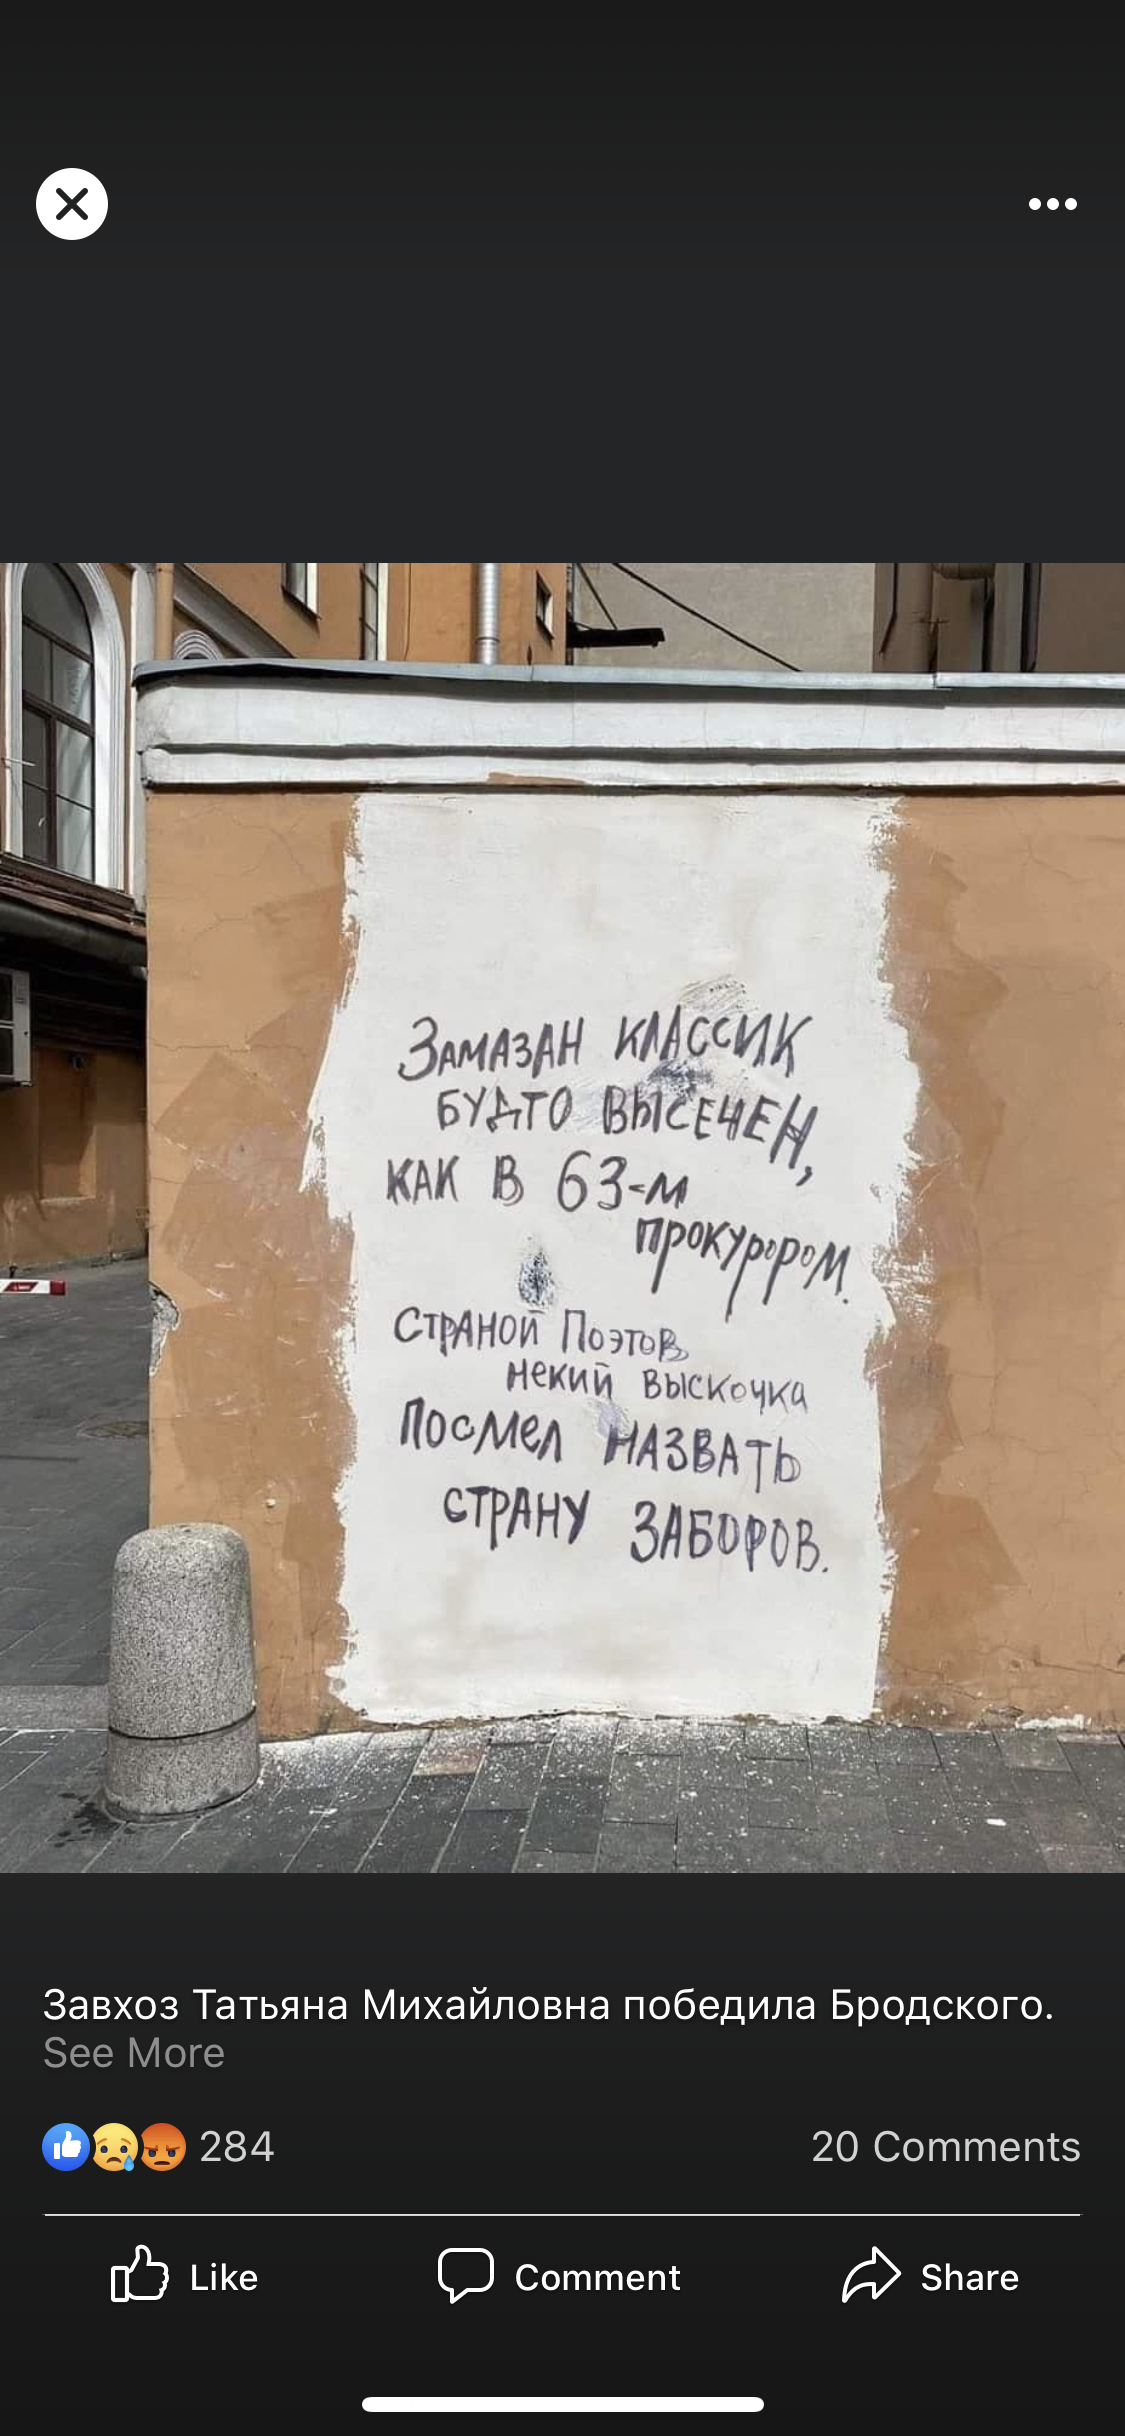 Замазан классик
будто высечен,
как в 63-м
прокурором.
Страной Поэтов
некий выскочка
посмел назвать
страну заборов.
Завхоз Татьяна Михайловна победила Бродского.
See More
284
20 Comments
Like
Comment
Share